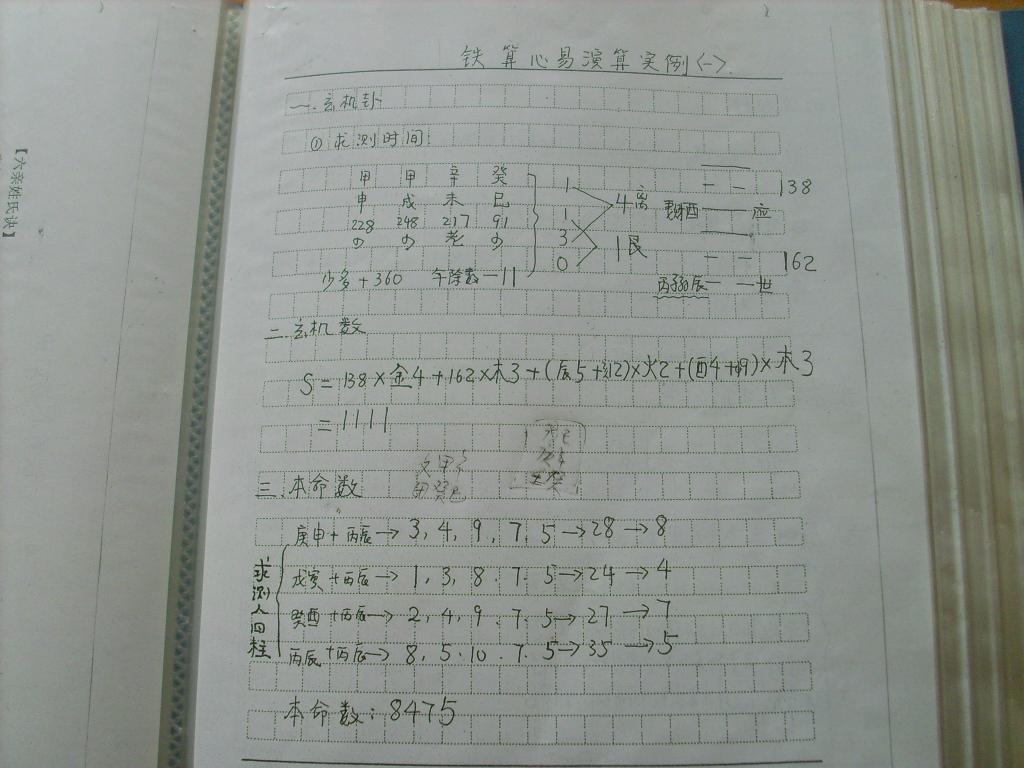 铁算心易演算实例<一>.
一.玄机卦
①求测时间:
甲 甲 辛 癸
申 戌 未 巳
228 248 217 91
少 少 老 少
少多+360 年除数—11
1
1
3
0
4离
1艮
138
酉 应
162
丙 辰 世
二.玄机数
S=138×金4+162×木3+(辰5+ 12)×火2+(酉4+ 9)×木3
=1111
三.本命数
求测人四柱
庚申+丙辰→3,4,9,7,5→28→8
戊寅+丙辰→1,3,8.7.5→24→4
癸酉+丙辰→2,4,9.7.5→27→7
丙辰+丙辰→8,5.10.7.5→35→5
本命数:8475